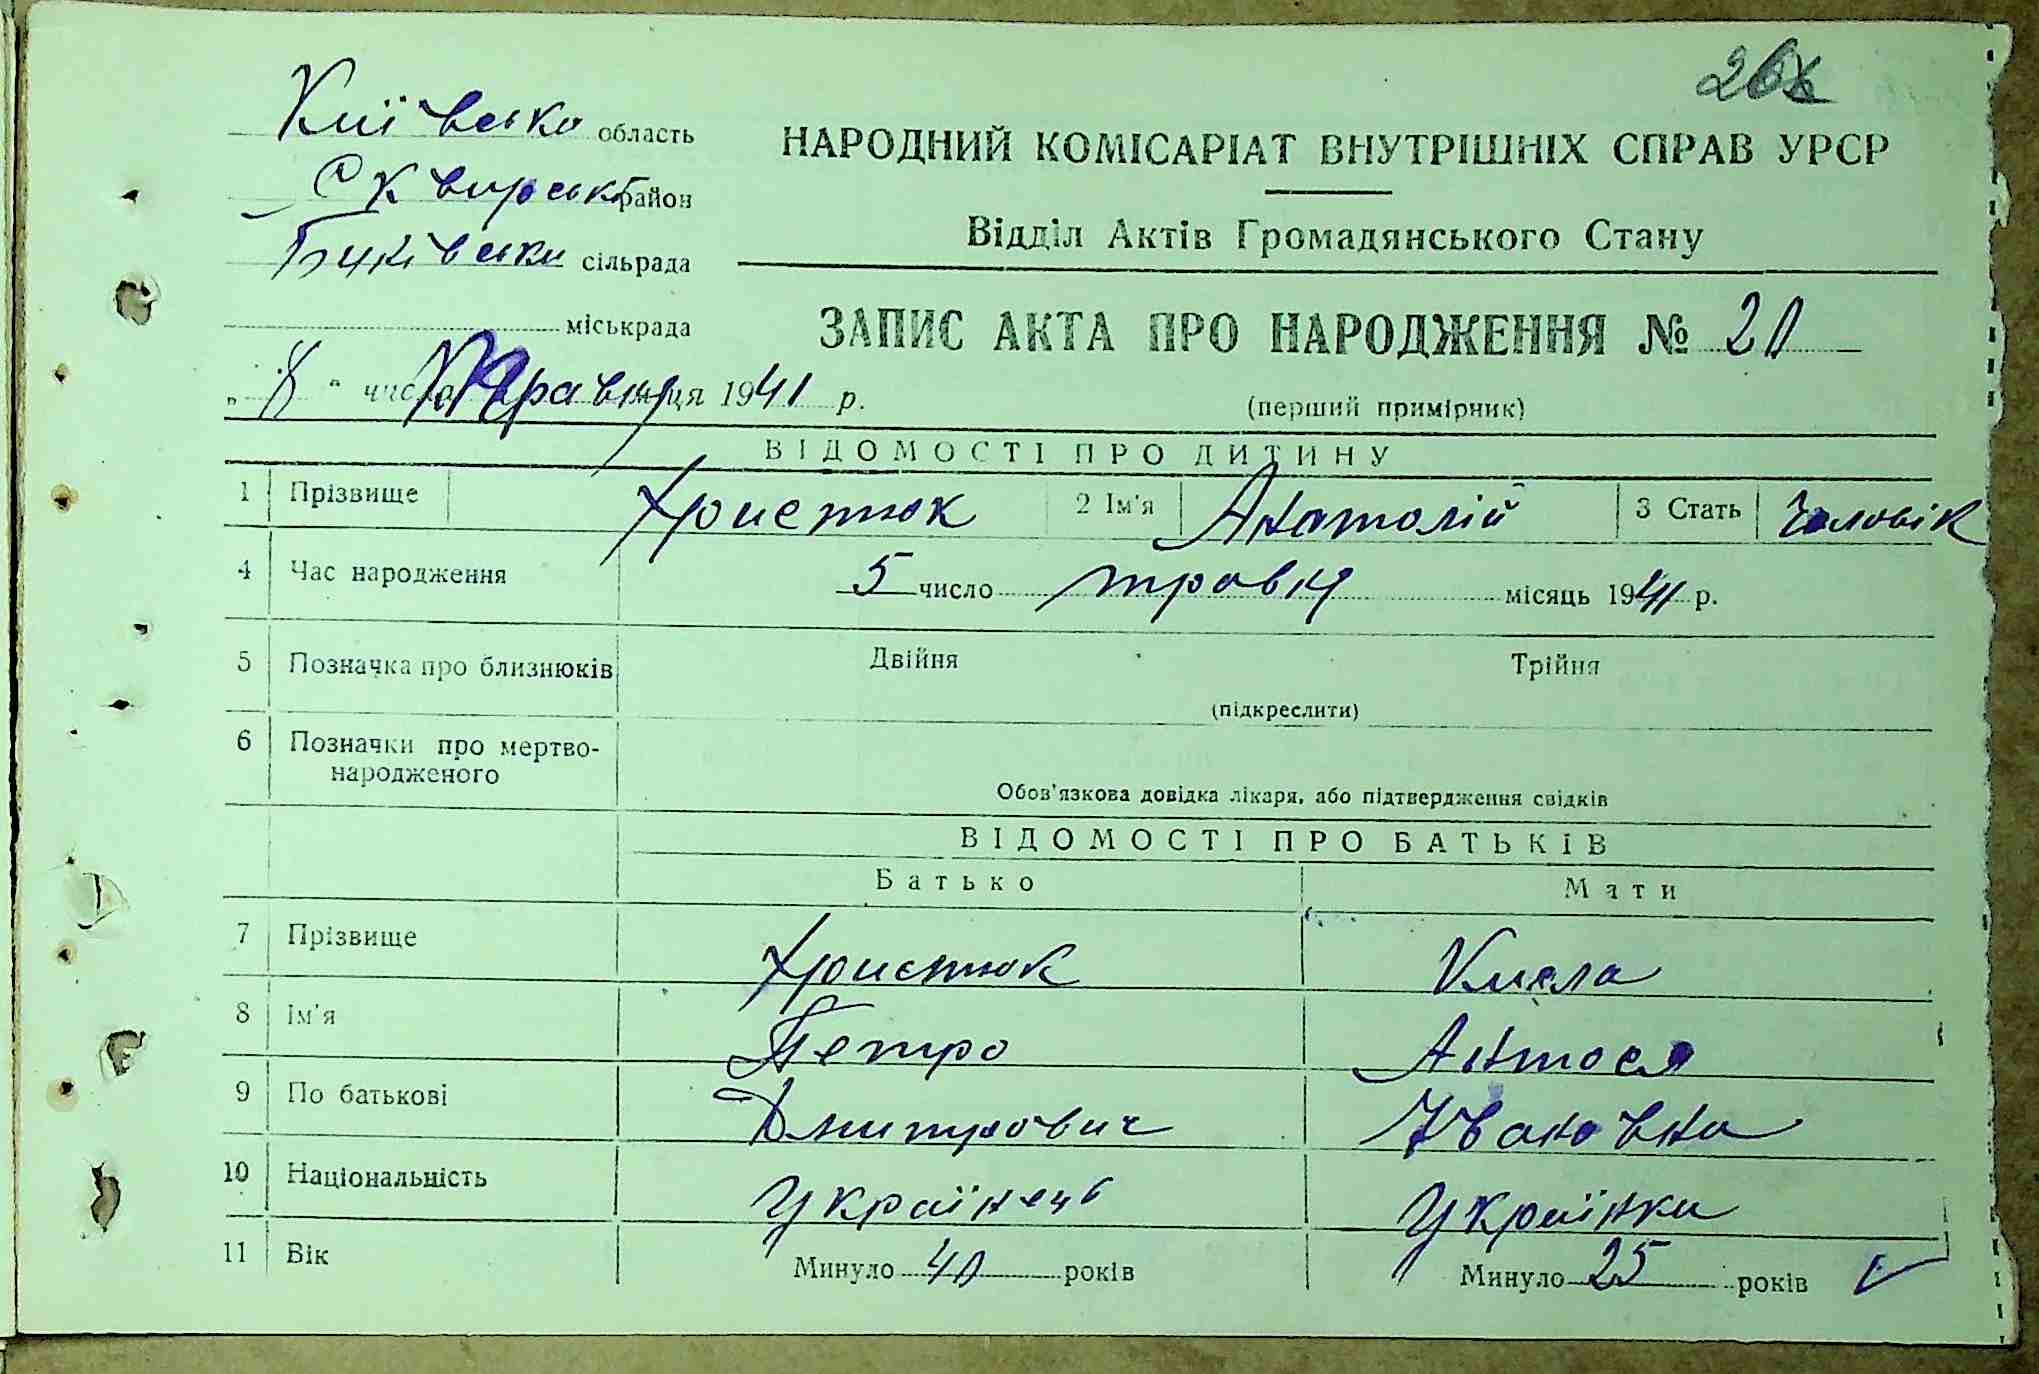 Київська область
Сквирськ район
Буківська сільрада
міськрада
НАРОДНИЙ КОМІСАРІАТ ВНУТРІШНІХ СПРАВ УРСР
Відділ Актів Громадянського Стану
ЗАПИС АКТА ПРО НАРОДЖЕННЯ № 20
„ 8 " числа Травня місяця 1941 р.
(перший примірник)
ВІДОМОСТІ ПРО ДИТИНУ
1 Прізвище Христюк 2 Ім'я Анатолій 3 Стать Чоловік
4 Час народження 5 число травня місяць 1941 р.
5 Позначка про близнюків Двійня Трійня
(підкреслити)
6 Позначки про мертво-
народженого
Обов'язкова довідка лікаря, або підтвердження свідків
ВІДОМОСТІ ПРО БАТЬКІВ
Батько Мати
7 Прізвище Христюк Кисла
8 Ім'я Петро Антося
9 По батькові Дмитрович Івановна
10 Національність Українець Українка
11 Вік Минуло 40 років Минуло 25 років